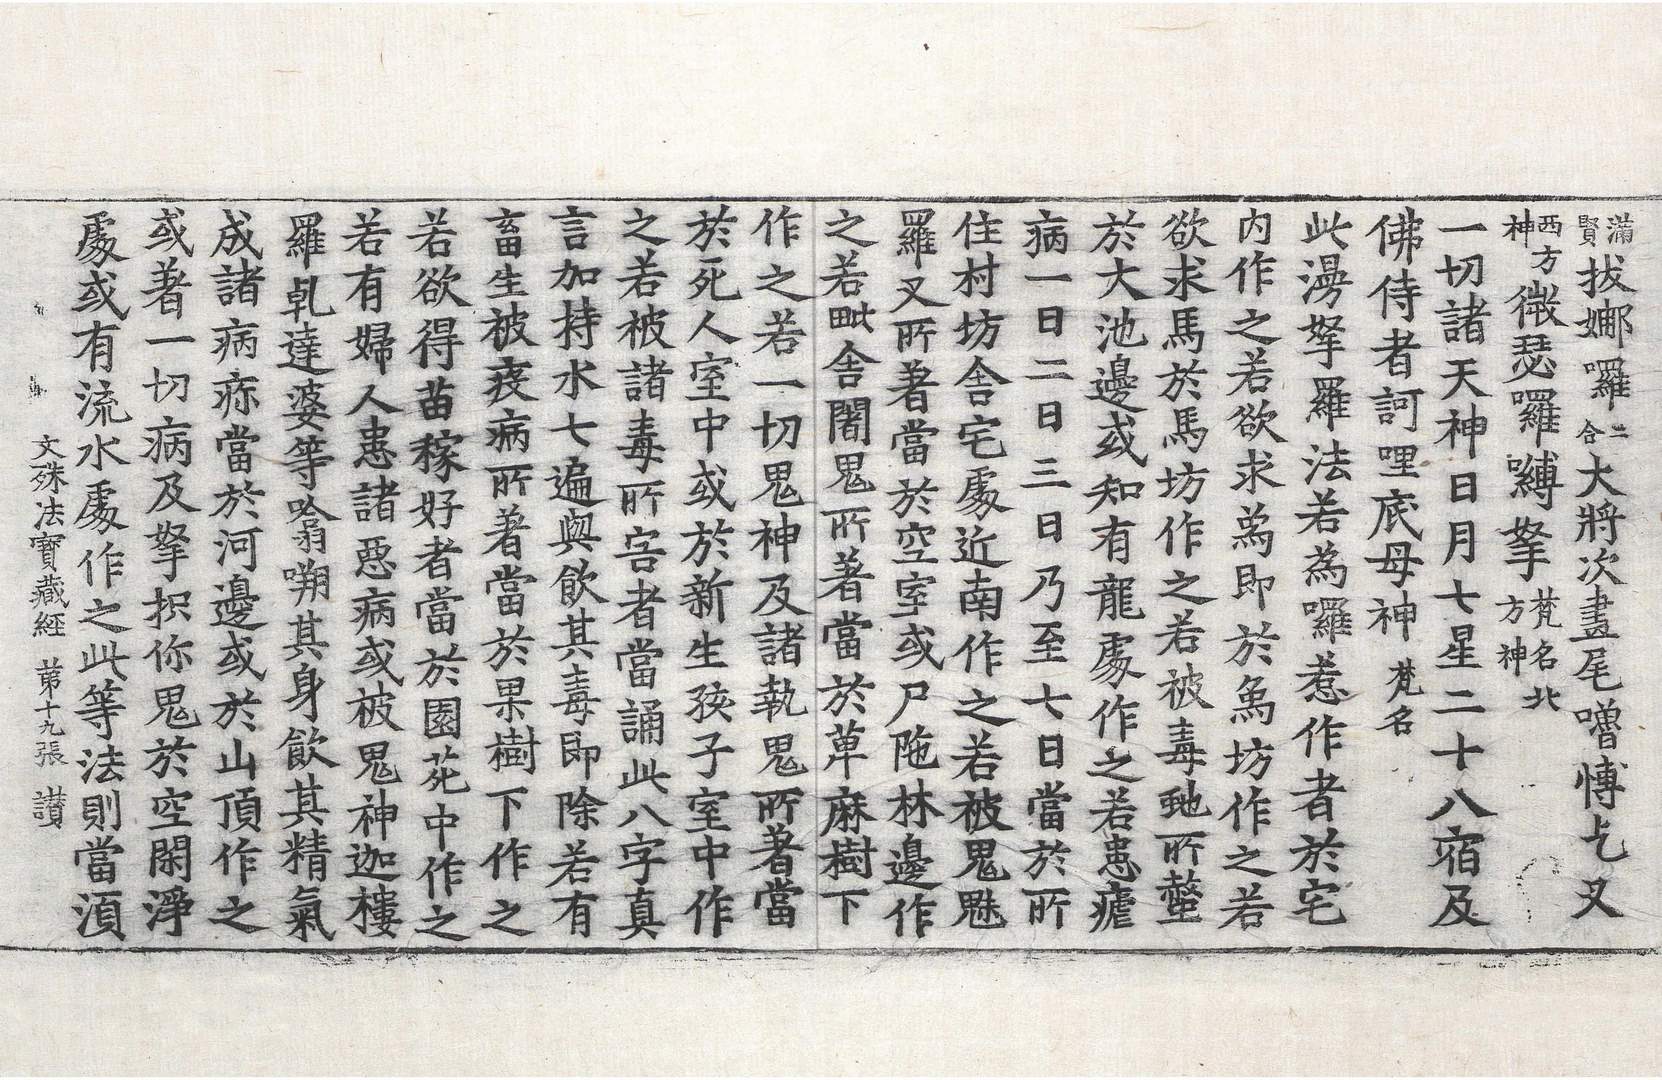 滿賢拔娜囉二合大將次畫尾嚕愽乞叉
西方神微瑟囉嚩拏梵名北方神
一切諸天神日月七星二十八宿及
佛侍者訶哩底母神梵名
此漫拏羅法若為囉惹作者於宅
內作之若欲求為即於為坊作之若
欲求馬於馬坊作之若被毒虵所螫
於大池邊或知有龍處作之若患瘧
病一日二日三日乃至七日當於所
住村坊舍宅處近南作之若被鬼魅
羅叉所著當於空室或尸陁林邊作
之若毗舍闍鬼所著當於萆麻樹下
作之若一切鬼神及諸執鬼所著當
於死人室中或於新生孩子室中作
之若被諸毒所害者當誦此八字真
言加持水七遍與飲其毒即除若有
畜生被疫病所著當於果樹下作之
若欲得苗稼好者當於園苑中作之
若有婦人患諸惡病或被鬼神迦樓
羅乹達婆等噏嗍其身飲其精氣
成諸病瘀當於河邊或於山頂作之
或著一切病及拏枳你鬼於空閑淨
處或有流水處作之此等法則當湏
文殊法寶藏經 第十九張 讃